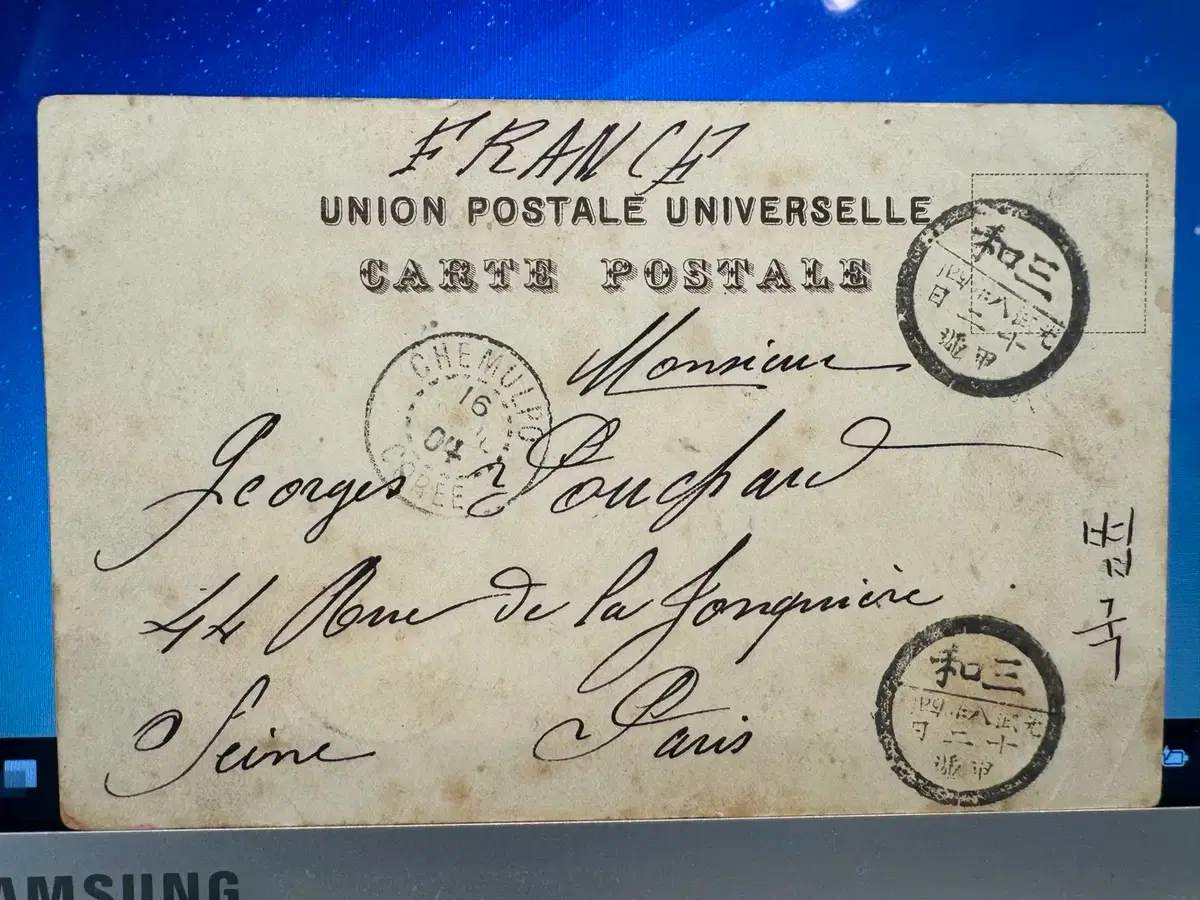 FRANCE
UNION POSTALE UNIVERSELLE
CARTE POSTALE
三和
光武八年
CHEMULPO
16
04
COREE
Monsieur
Georges Pouchard
44 Rue de la Jonquière
Seine Paris
법국
三和
光武八年
SAMSUNG